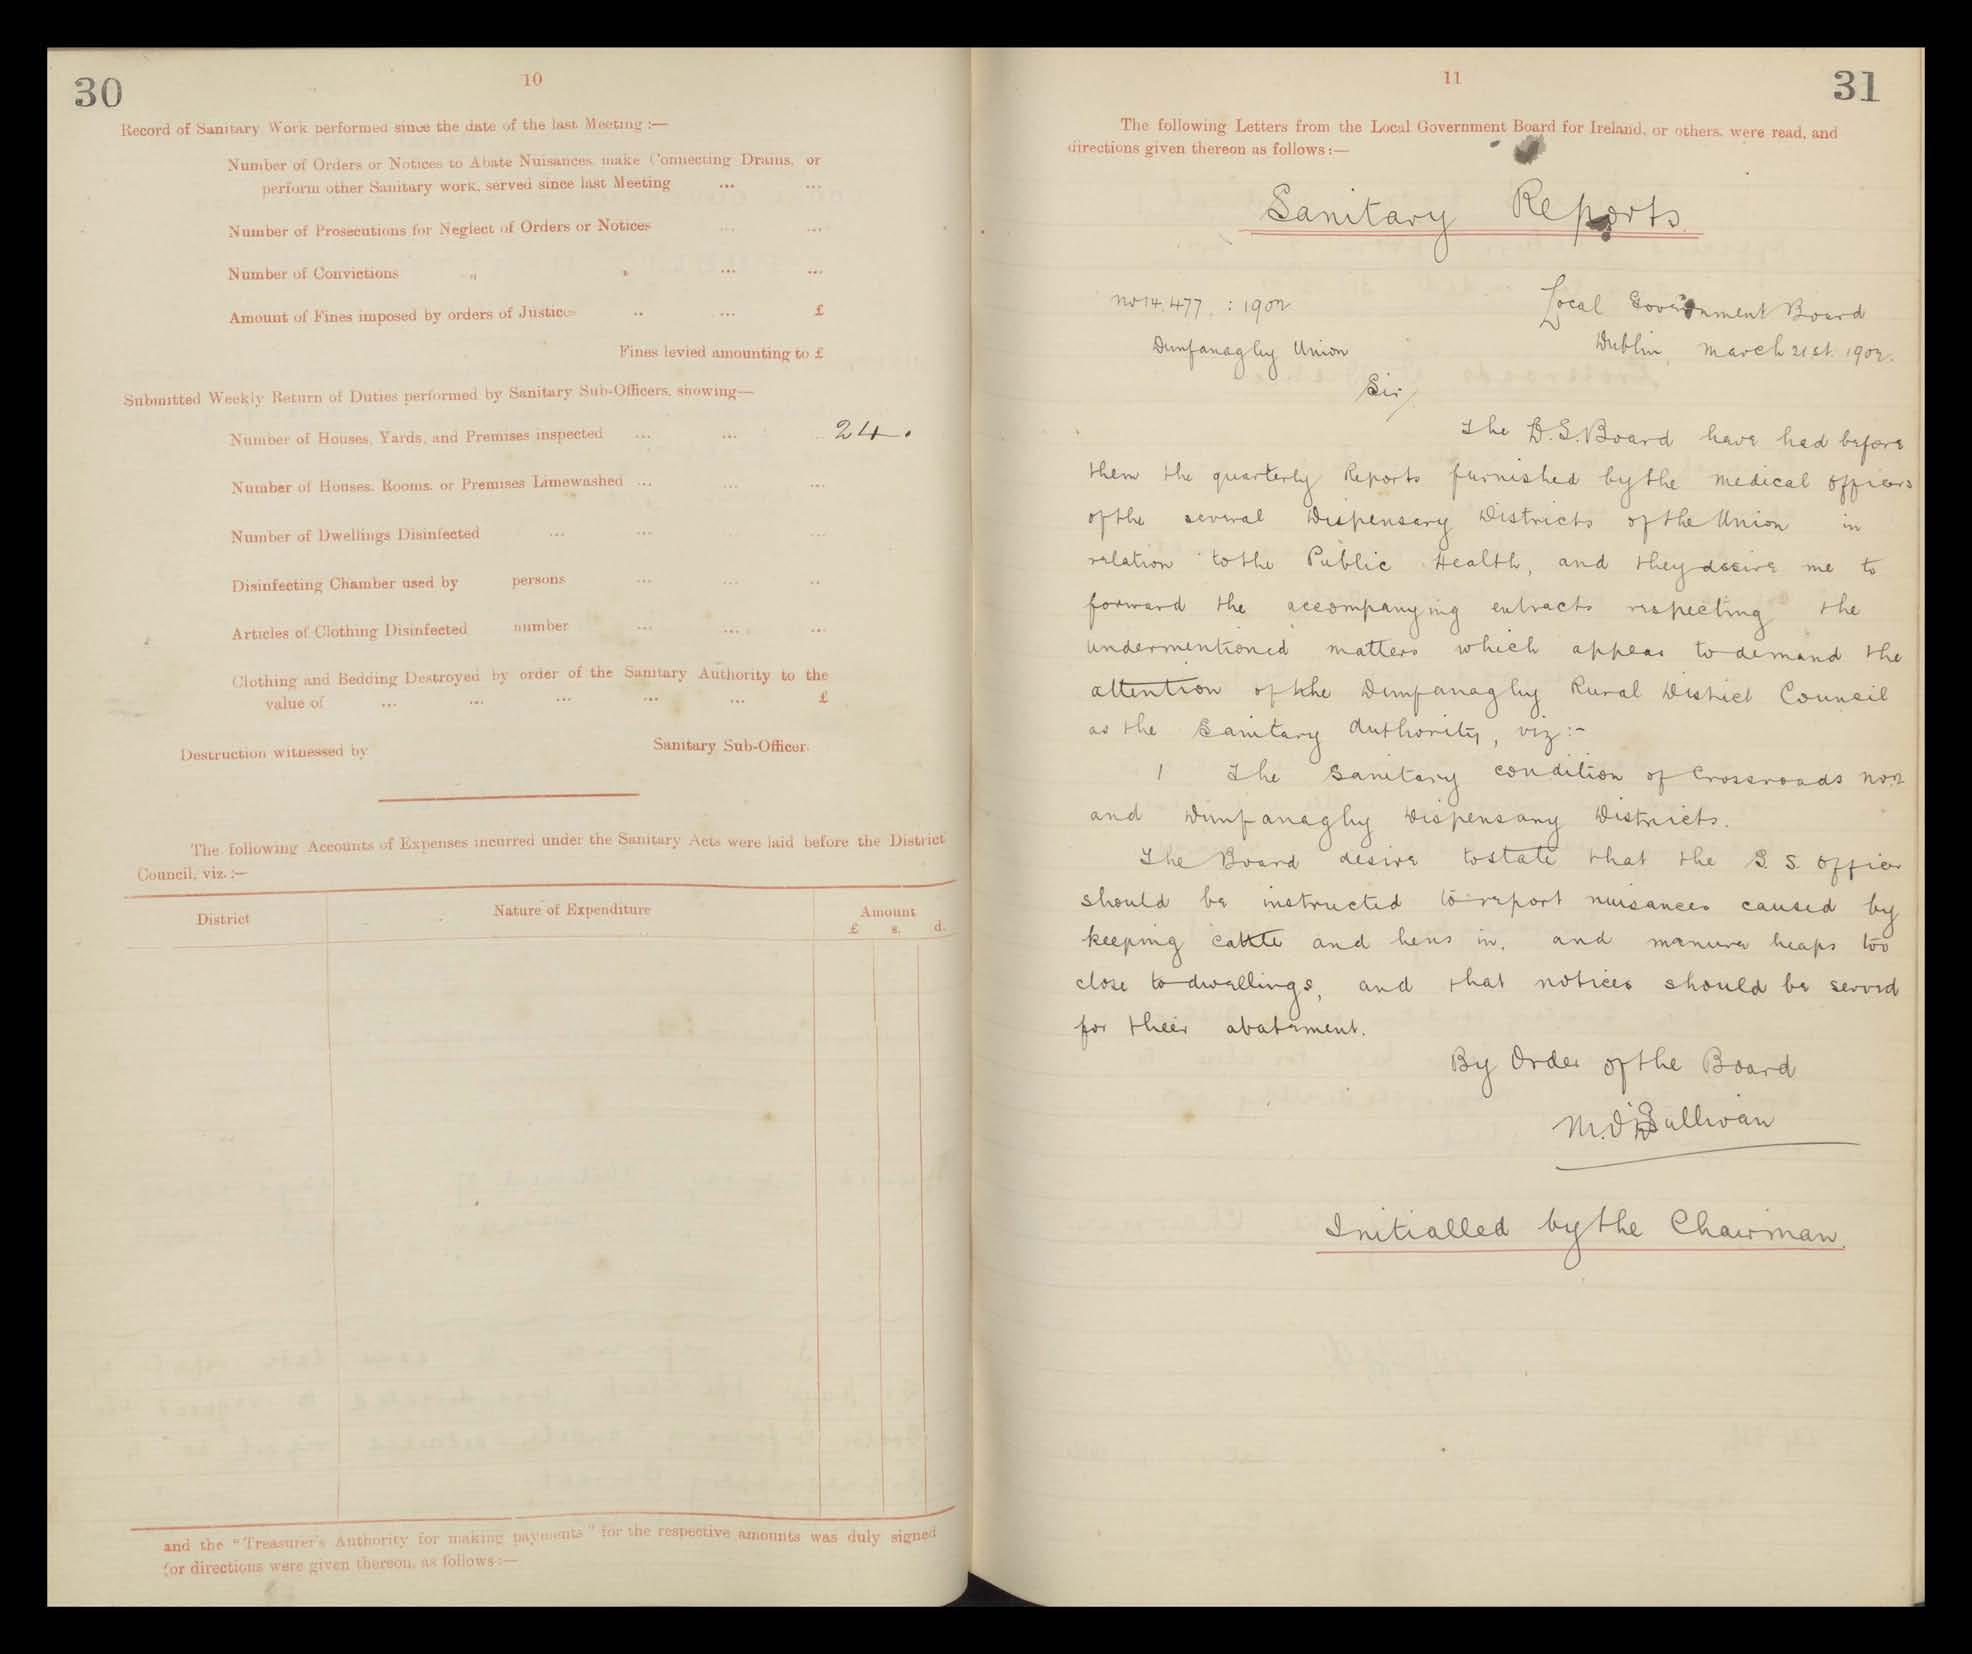 30
10
Record of Sanitary Work performed since the date of the last Meeting :—
Number of Orders or Notices to Abate Nuisances, make Connecting Drains, or
perform other Sanitary work, served since last Meeting ... ...
Number of Prosecutions for Neglect of Orders or Notices ... ...
Number of Convictions „ „ ... ...
Amount of Fines imposed by orders of Justices ... ... £
Fines levied amounting to £
Submitted Weekly Return of Duties performed by Sanitary Sub-Officers, showing—
Number of Houses, Yards, and Premises inspected ... ... 24.
Number of Houses, Rooms, or Premises Limewashed ... ... ...
Number of Dwellings Disinfected ... ... ...
Disinfecting Chamber used by persons ... ... ...
Articles of Clothing Disinfected number ... ... ...
Clothing and Bedding Destroyed by order of the Sanitary Authority to the
value of ... ... ... ... ... £
Destruction witnessed by Sanitary Sub-Officer.
The following Accounts of Expenses incurred under the Sanitary Acts were laid before the District
Council, viz. :—
District Nature of Expenditure Amount
£ s. d.
and the "Treasurer's Authority for making payments" for the respective amounts was duly signed
(or directions were given thereon, as follows :—
31
11
The following Letters from the Local Government Board for Ireland, or others, were read, and
directions given thereon as follows :—
Sanitary Reports.
No 14,477. : 1902 Local Government Board
Dunfanaghy Union Dublin, March 21st. 1902.
Sir/
The L.G. Board have had before
them the quarterly Reports furnished by the Medical Officers
of the several Dispensary Districts of the Union in
relation to the Public Health, and they desire me to
forward the accompanying extracts respecting the
undermentioned matters which appear to demand the
attention of the Dunfanaghy Rural District Council
as the Sanitary Authority, viz :-
1 The Sanitary condition of Crossroads No 2
and Dunfanaghy Dispensary Districts.
The Board desire to state that the S. S. Officer
should be instructed to report nuisances caused by
keeping cattle and hens in, and manure heaps too
close to dwellings, and that notices should be served
for their abatement.
By Order of the Board
M. O'Sullivan
Initialled by the Chairman.